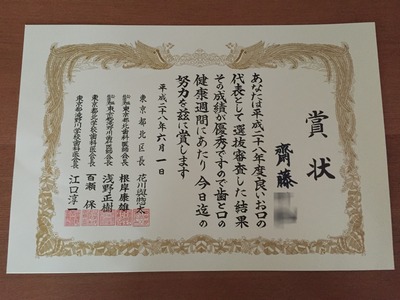 賞状
齋藤
あなたは平成二十八年度良いお口の
代表として選抜審査した結果
その成績が優秀ですので歯と口の
健康週間にあたり今日迄の
努力を茲に賞します
平成二十八年六月一日
東京都北区長 花川與惣太
東京都北歯科医師会長 根岸康雄
東京都滝野川歯科医師会長 浅野正樹
東京都北学校歯科医会長 百瀬保
東京都滝野川学校歯科医会長 江口淳一